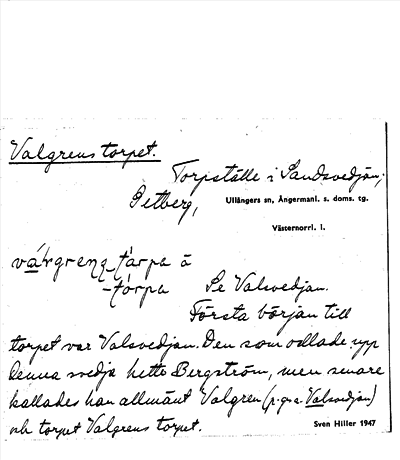 Valgrens torpet.
Torpställe i Sandsvedjan;
Petberg,
Ullångers sn, Ångermanl. s. doms. tg.
Västernorrl. l.
-tórpa
Se Valsvedjan.
Första början till
torpet var Valsvedjan. Den som odlade upp
denna svedja hette Bergström, men senare
kallades han allmänt Valgren (p.gr.a. Valsvedjan)
och torpet Valgrens torpet.
Sven Hiller 1947